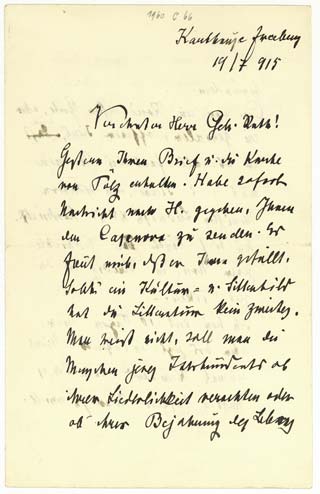 1960 C 66
Karthause Freiburg
19/7 915
Verehrter Herr Geh. Rath!
Gestern Ihren Brief u. die Karte
von Tölz erhalten. Habe sofort
Nachricht nach H. gegeben, Ihnen
den Casanova zu senden. Es
freut mich, daß er Ihnen gefällt.
ein Kultur= u. Sittenbild
hat die Litteratur kein zweites.
Man weiß nicht, soll man die
Menschen jenes Jahrhunderts ob
ihrer Liederlichkeit verachten oder
ob ihrer Bejahung des Lebens